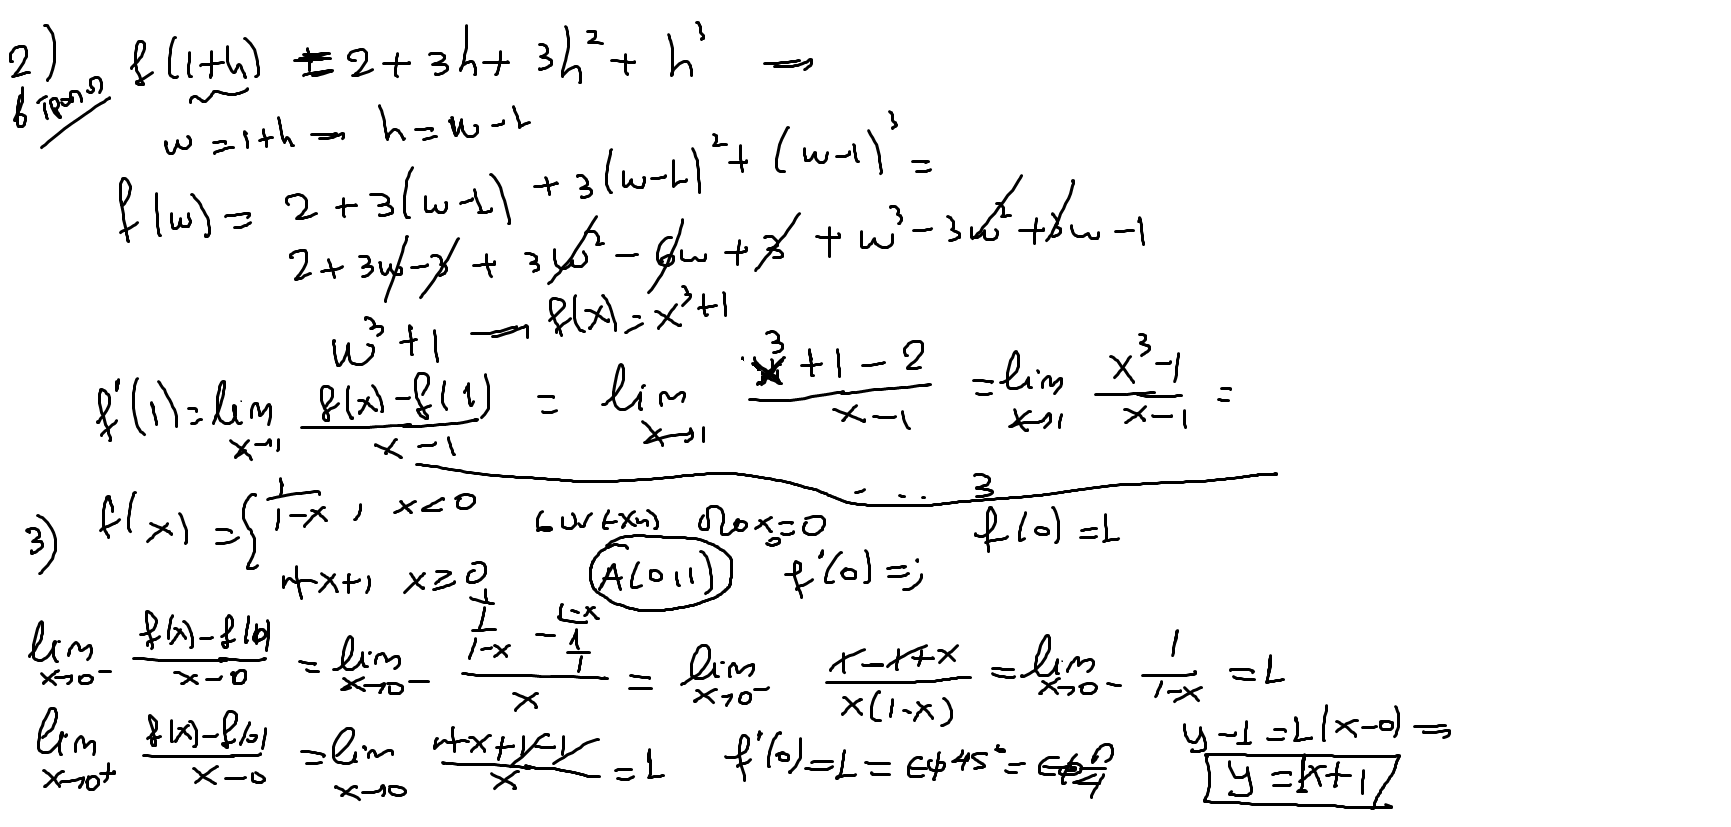 2) f(1+h) = 2 + 3h + 3h² + h³ →
β τρόπος
w = 1+h → h = w-1
f(w) = 2 + 3(w-1) + 3(w-1)² + (w-1)³ =
2 + 3w - 3 + 3w² - 6w + 3 + w³ - 3w² + 3w - 1
w³ + 1 → f(x) = x³+1
f'(1) = lim x→1 (f(x)-f(1))/(x-1) = lim x→1 (x³+1-2)/(x-1) = lim x→1 (x³-1)/(x-1) =
... 3
3) f(x) = { 1/(1-x), x<0 συνεχής στο x₀=0 f(0)=1
+x+1, x≥0 A(0,1) f'(0)=;
lim x→0⁻ (f(x)-f(0))/(x-0) = lim x→0⁻ (1/(1-x) - 1/1)/x = lim x→0⁻ (1-1+x)/(x(1-x)) = lim x→0⁻ 1/(1-x) = 1
lim x→0⁺ (f(x)-f(0))/(x-0) = lim x→0 (+x+1-1)/x = 1 f'(0)=1= εφ45° = εφ π/4 y-1=1(x-0) ⇒
y = x+1